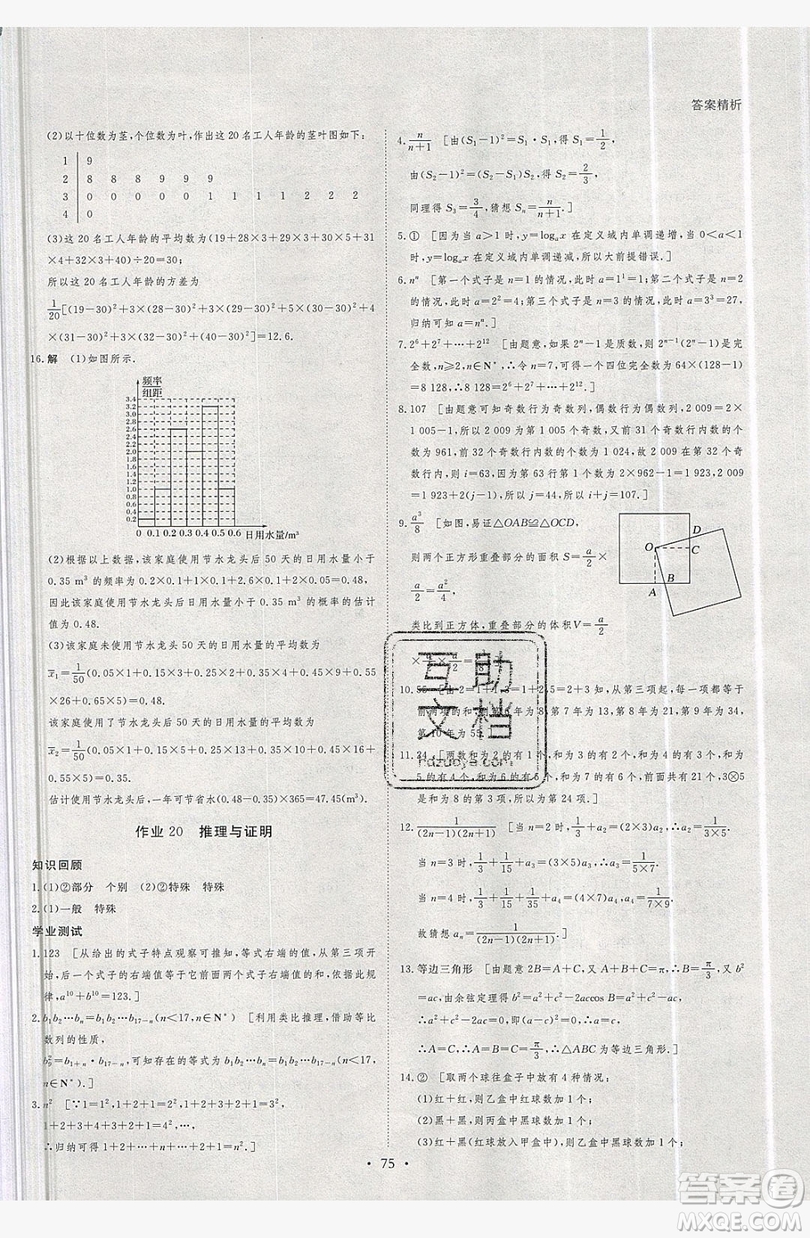 答案精析
(2)以十位数为茎,个位数为叶,作出这20名工人年龄的茎叶图如下:
1 | 9
2 | 8 8 8 9 9 9
3 | 0 0 0 0 0 1 1 1 2 2 2
4 | 0
(3)这20名工人年龄的平均数为(19+28×3+29×3+30×5+31
×4+32×3+40)÷20=30;
所以这20名工人年龄的方差为
1/20[(19-30)²+3×(28-30)²+3×(29-30)²+5×(30-30)²+4
×(31-30)²+3×(32-30)²+(40-30)²]=12.6.
16.解 (1)如图所示.
频率
组距
3.4
3.2
3.0
2.8
2.6
2.4
2.2
2.0
1.8
1.6
1.4
1.2
1.0
0.8
0.6
0.4
0.2
0 0.1 0.2 0.3 0.4 0.5 0.6 日用水量/m³
(2)根据以上数据,该家庭使用节水龙头后50天的日用水量小于
0.35 m³的频率为0.2×0.1+1×0.1+2.6×0.1+2×0.05=0.48,
因此该家庭使用节水龙头后日用水量小于0.35 m³的概率的估计值
为0.48.
(3)该家庭未使用节水龙头50天日用水量的平均数为
x̄₁=1/50(0.05×1+0.15×3+0.25×2+0.35×4+0.45×9+0.55
×26+0.65×5)=0.48.
该家庭使用了节水龙头后50天日用水量的平均数为
x̄₂=1/50(0.05×1+0.15×5+0.25×13+0.35×10+0.45×16+
0.55×5)=0.35.
估计使用节水龙头后,一年可节省水(0.48-0.35)×365=47.45(m³).
作业20 推理与证明
知识回顾
1.(1)①②部分 个别 (2)①②特殊 特殊
2.(1)一般 特殊
学业测试
1.123 [从给出的式子特点观察可推知,等式右端的值,从第三项开
始,后一个式子的右端值等于它前面两个式子右端值的和,照此规
律,a¹⁰+b¹⁰=123.]
2.b₁b₂…bₙ=b₁b₂…b₁₇₋ₙ(n<17,且n∈N*) [利用类比推理,借助等比
数列的性质,
b₉²=b₁₊ₙ·b₁₇₋ₙ,可知存在的等式为b₁b₂…bₙ=b₁b₂…b₁₇₋ₙ(n<17,
且n∈N*).]
3.n² [∵1=1²,1+2+1=2²,1+2+3+2+1=3²,
1+2+3+4+3+2+1=4²,…,
∴归纳可得1+2+…+n+…+2+1=n².]
4.n/(n+1) [由(S₁-1)²=S₁·S₁,得S₁=1/2,
由(S₂-1)²=(S₂-S₁)S₂,得S₂=2/3,
同理得S₃=3/4,猜想Sₙ=n/(n+1).]
5.① [因为当a>1时,y=logₐx在定义域内单调递增,当0<a<1
时,y=logₐx在定义域内单调递减,所以大前提错误.]
6.nⁿ [第一个式子是n=1的情况,此时a=1¹=1;第二个式子是n=2
的情况,此时a=2²=4;第三个式子是n=3的情况,此时a=3³=27,
归纳可知a=nⁿ.]
7.2⁶+2⁷+…+2¹² [由题意,如果2ⁿ-1是质数,则2ⁿ⁻¹(2ⁿ-1)是完全
数,n≥2,n∈N*,∴令n=7,可得一个四位完全数为64×(128-1)=
8 128,∴2⁶+2⁷+…+2¹².]
8.107 [由题意可知奇数行为奇数列,偶数行为偶数列,2 009=2×
1 005-1,所以2 009为第1 005个奇数,又前31个奇数行内数的个
数为961,前32个奇数行内数的个数为1 024,故2 009在第32个奇
数行内,所以i=63,因为第63行第一个数为2×962-1=1 923,2 009
=1 923+2(j-1),所以j=44,所以i+j=107.]
9.a³/8 [如图,易证△OAB≌△OCD,
则两个正方形重叠部分的面积S=a/2×
a/2=a²/4,
类比到正方体,重叠部分的体积V=a/2
O D C B A
10.55
所以第6年为8,第7年为13,第8年为21,第9年为34,
第10年为55.]
11.24 [两数和为2的有1个,和为3的有2个,和为4的有3个,和为
5的有4个,和为6的有5个,和为7的有6个,前面共有21个,3⊗5
是和为8的第3项,所以为第24项.]
12.1/((2n-1)(2n+1)) [当n=2时,1/3+a₂=(2×3)a₂,∴a₂=1/(3×5).
当n=3时,1/3+1/15+a₃=(3×5)a₃,∴a₃=1/(5×7).
当n=4时,1/3+1/15+1/35+a₄=(4×7)a₄,∴a₄=1/(7×9).
故猜想aₙ=1/((2n-1)(2n+1)).]
13.等边三角形 [由题意得2B=A+C,又A+B+C=π,∴B=π/3,又b²
=ac,由余弦定理得b²=a²+c²-2accos B=a²+c²-ac,
∴a²+c²-2ac=0,即(a-c)²=0,∴a=c,
∴A=C,∴A=B=C=π/3,∴△ABC为等边三角形.]
14.② [取两个球往盒子中放有4种情况:
(1)红+红,则乙盒中红球数加1个;
(2)黑+黑,则丙盒中黑球数加1个;
(3)红+黑(红球放入甲盒中),则乙盒中黑球数加1个;
• 75 •
互助
文档
hdzuoye.com
答案圈
MXQE.COM